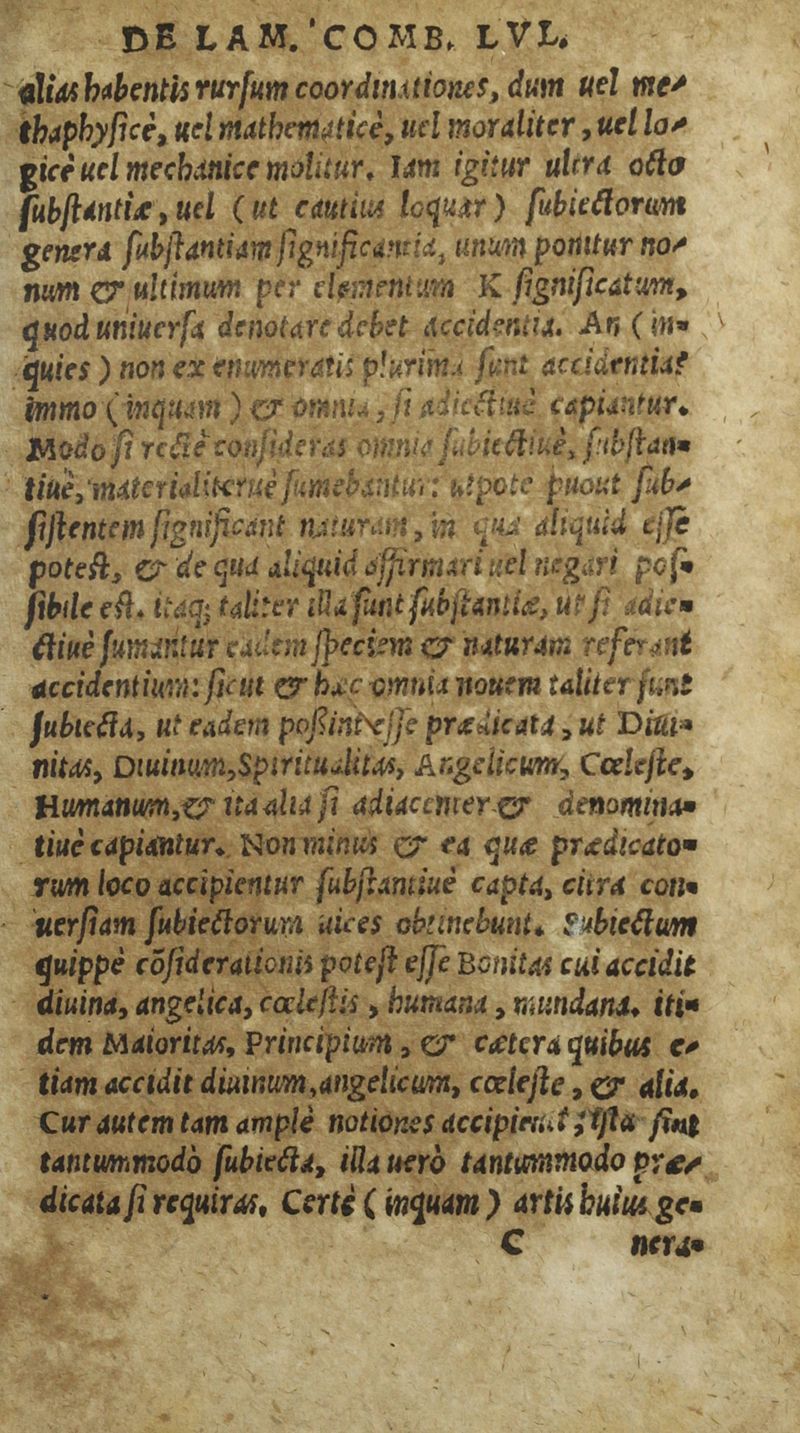 DE LAM. COMB. LVL.
alias habentis rursum coordinationes, dum uel me-
thaphysicè, uel mathematicè, uel moraliter, uel lo-
gicè uel mechanice molitur. Iam igitur ultra octo
substantiæ, uel (ut cautius loquar) subiectorum
genera substantiam significantia, unum ponitur no-
num & ultimum per elementum K significatum,
quod uniuersa denotare debet accidentia. An (in-
quies) non ex enumeratis plurima sunt accidentia?
immo (inquam) & omnia, si adiectiuè capiantur.
Modo si rectè consideras omnia subiectiuè, substan-
tiuè, materialiterue sumebantur: utpote puout sub-
sistentem significant naturam, in qua aliquid esse
potest, & de qua aliquid affirmari uel negari pos-
sibile est. itaq; taliter illa sunt substantiæ, ut si adie-
ctiuè sumantur eadem speciem & naturam referant
accidentium: sicut & hæc omnia nouem taliter sunt
subiecta, ut eadem possint esse prædicata, ut Diui-
nitas, Diuinum, Spiritualitas, Angelicum, Cœleste,
Humanum, & ita alia si adiacenter & denomina-
tiuè capiantur. Non minus & ea quæ prædicato-
rum loco accipientur substantiuè capta, citra con-
uersiam subiectorum uices obtinebunt. Subiectum
quippè cõsiderationis potest esse Bonitas cui accidit
diuina, angelica, cœlestis, humana, mundana. iti-
dem Maioritas, Principium, & cætera quibus e-
tiam accidit diuinum, angelicum, cœleste, & alia.
Cur autem tam amplè notiones ista sint
tantummodò subiecta, illa uerò tantummodo præ-
dicata si requiras. Certè (inquam) artis huius ge-
C nera-